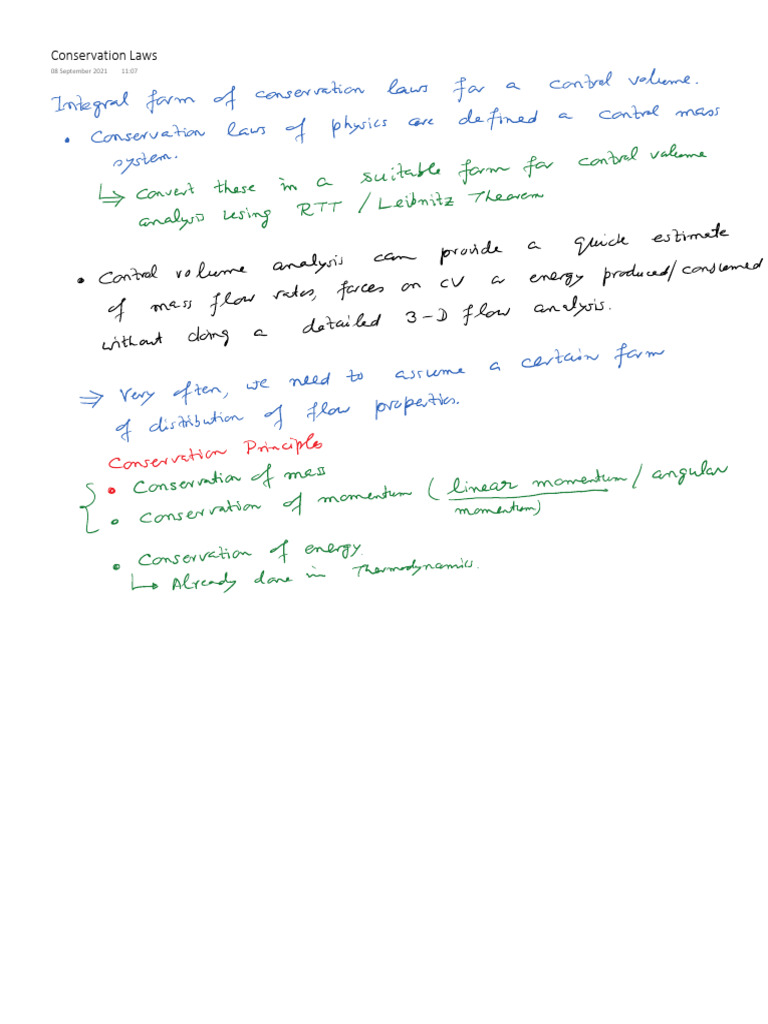 Conservation Laws
08 September 2021 11:07
Integral form of conservation laws for a control volume.
• Conservation laws of physics are defined a control mass
system.
↳ Convert these in a suitable form for control volume
analysis using RTT / Leibnitz Theorem
• Control volume analysis can provide a quick estimate
of mass flow rates, forces on CV or energy produced/consumed
without doing a detailed 3-D flow analysis.
⇒ Very often, we need to assume a certain form
of distribution of flow properties.
Conservation Principles
• Conservation of mass
• Conservation of momentum (linear momentum / angular
momentum)
• Conservation of energy.
↳ Already done in Thermodynamics.